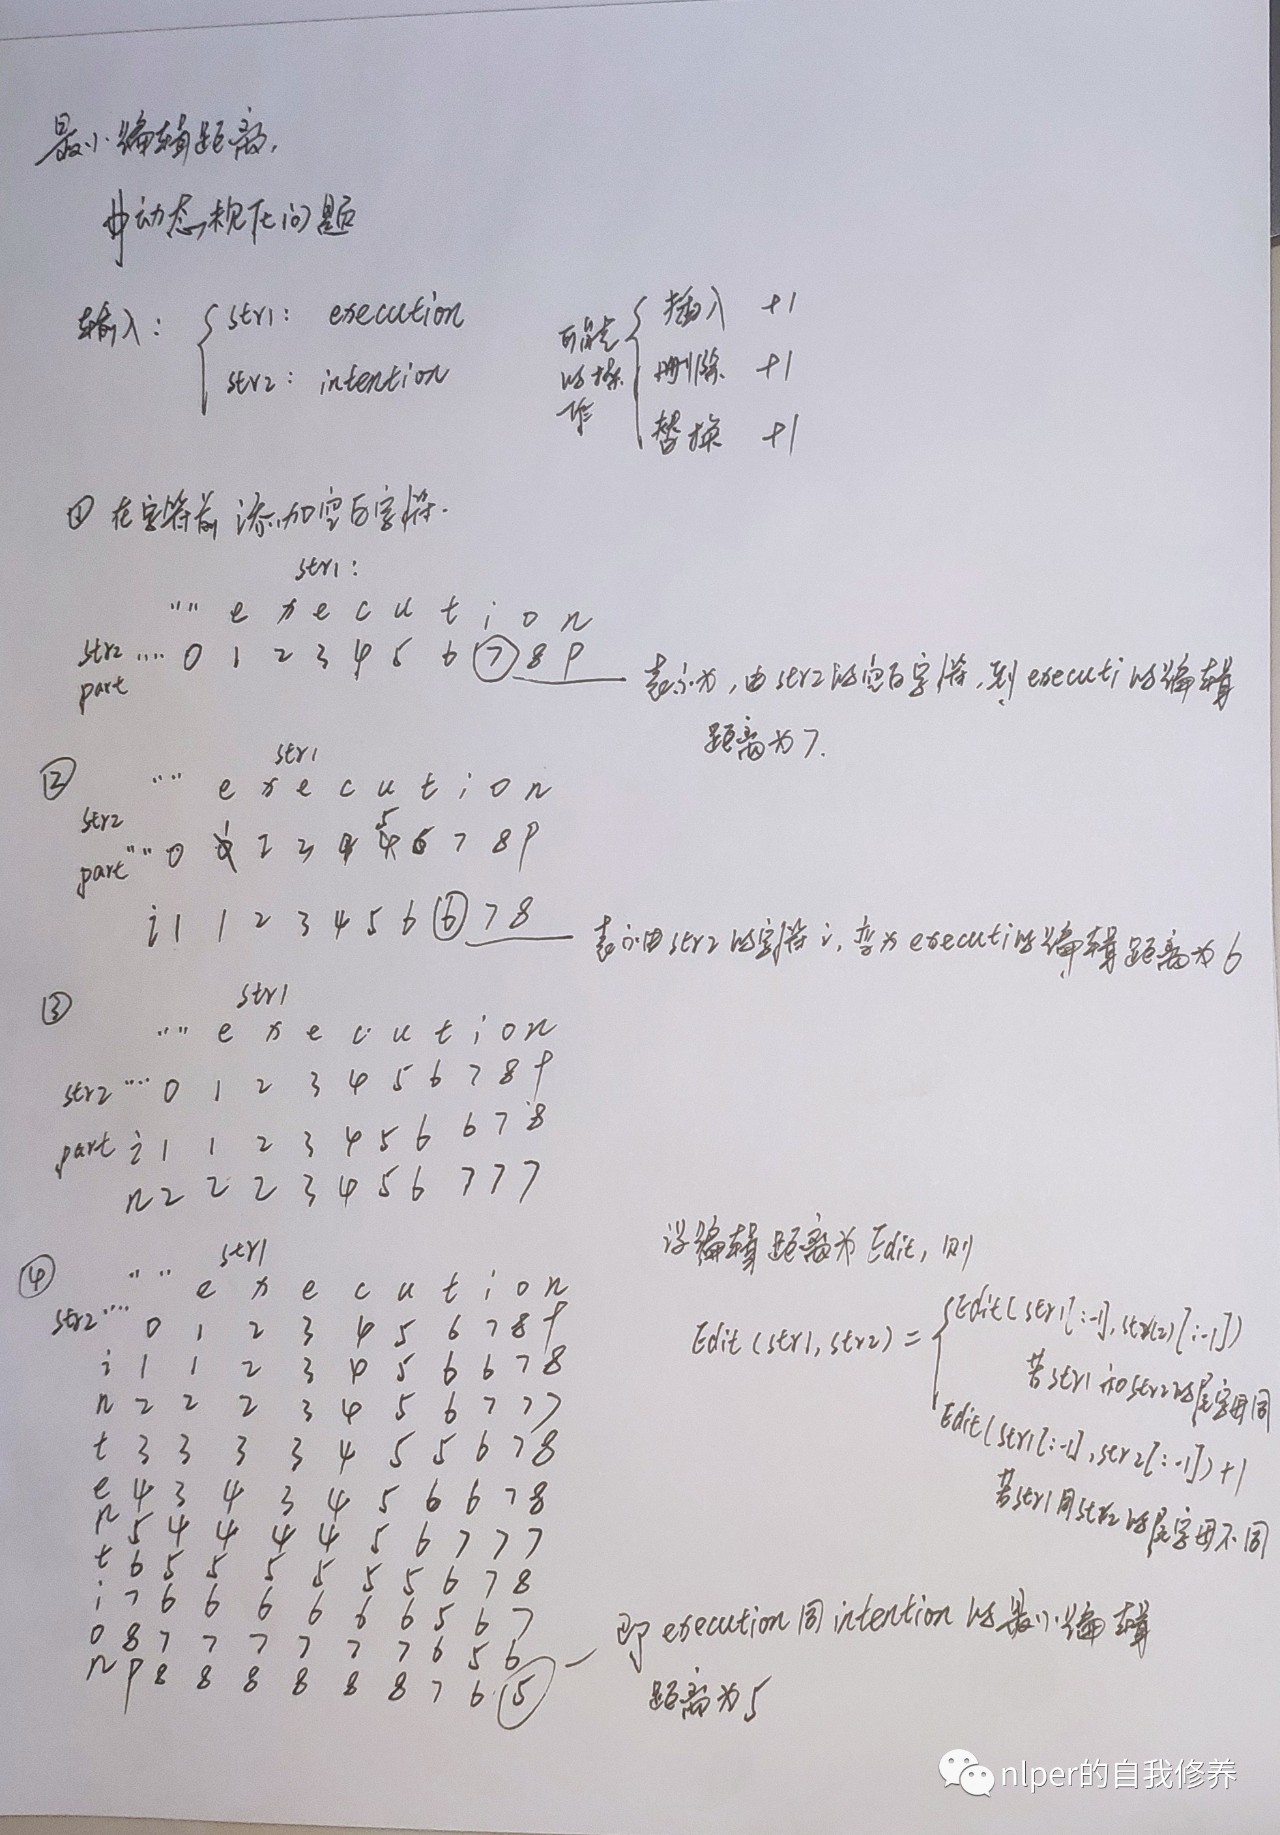 最小编辑距离,
#动态规划问题
输入: { str1: execution
str2: intention
可能的操作 { 插入 +1
删除 +1
替换 +1
① 在字符前添加空白字符.
str1:
"" e x e c u t i o n
str2 part "" 0 1 2 3 4 5 6 7 8 9
表示为, 由str2的空白字符, 到executi的编辑
距离为7.
② str1
"" e x e c u t i o n
str2 part "" 0 1 2 3 4 5 6 7 8 9
i 1 1 2 3 4 5 6 6 7 8
表示由str2的字符i, 变为executi的编辑距离为6
③ str1
"" e x e c u t i o n
str2 "" 0 1 2 3 4 5 6 7 8 9
part i 1 1 2 3 4 5 6 6 7 8
n 2 2 2 3 4 5 6 7 7 7
④ str1
"" e x e c u t i o n
str2 "" 0 1 2 3 4 5 6 7 8 9
i 1 1 2 3 4 5 6 6 7 8
n 2 2 2 3 4 5 6 7 7 7
t 3 3 3 3 4 5 5 6 7 8
e 4 3 4 3 4 5 6 6 7 8
n 5 4 4 4 4 5 6 7 7 7
t 6 5 5 5 5 5 5 6 7 8
i 7 6 6 6 6 6 6 5 6 7
o 8 7 7 7 7 7 7 6 5 6
n 9 8 8 8 8 8 8 7 6 5
设编辑距离为Edit, 则
Edit(str1, str2) = { Edit(str1[:-1], str(2)[:-1])
若str1和str2的尾字母同
Edit(str1[:-1], str2[:-1])+1
若str1同str2的尾字母不同
即execution同intention的最小编辑
距离为5
nlper的自我修养